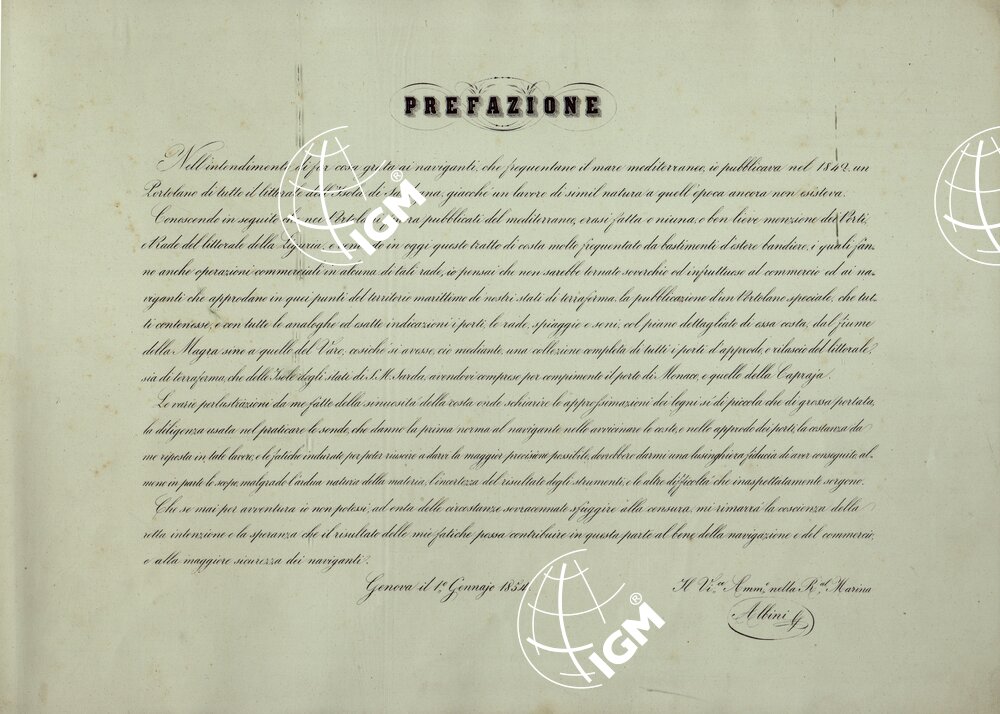 PREFAZIONE
Nell'intendimento di far cosa grata ai naviganti, che frequentano il mare mediterraneo, io pubblicava nel 1842 un
Portolano di tutto il littorale dell'Isola di Sardegna, giacchè un lavoro di simil natura a quell'epoca ancora non esisteva.
Conoscendo in seguito che nei Portolani finora pubblicati del mediterraneo, erasi fatta o niuna, o ben lieve menzione dei Porti,
e Rade del littorale della Liguria, e venendo in oggi questo tratto di costa molto frequentato da bastimenti d'estere bandiere, i quali fan-
no anche operazioni commerciali in alcuna di tali rade, io pensai che non sarebbe tornato soverchio ed infruttuoso al commercio ed ai na-
viganti che approdano in quei punti del territorio marittimo de' nostri stati di terraferma, la pubblicazione d'un Portolano speciale, che tut-
ti contenesse, e con tutte le analoghe ed esatte indicazioni i porti, le rade, spiaggie e seni, col piano dettagliato di essa costa, dal fiume
della Magra sino a quello del Varo, cosichè si avesse, ciò mediante, una collezione completa di tutti i porti d'approdo, e rilascio del littorale,
sia di terraferma, che delle Isole degli stati di S. M. Sarda, avendovi compreso per compimento il porto di Monaco, e quello della Capraja.
Le varie perlustrazioni da me fatte della sinuosità della costa onde schiarire le approssimazioni dei legni sì di piccola che di grossa portata,
la diligenza usata nel praticare le sonde, che danno la prima norma al navigante nello avvicinare le coste, e nello approdo dei porti, la costanza da
me reposta in tale lavoro, e le fatiche indurate per poter riuscire a darvi la maggior precisione possibile, dovrebbero darmi una lusinghiera fiducia di aver conseguito, al-
meno in parte lo scopo, malgrado l'ardua natura della materia, l'incertezza del risultato degli strumenti, e le altre difficoltà che inaspettatamente sorgono.
Che se mai per avventura io non potessi, ad onta delle circostanze sovraccennate sfuggire alla censura, mi rimarrà la coscienza della
retta intenzione e la speranza che il risultato delle mie fatiche possa contribuire in questa parte al bene della navigazione e del commercio,
e alla maggiore sicurezza dei naviganti.
Genova il 1º Gennajo 1854.
Il Vi.ce Amm.º nella R.al Marina
Albini G
IGM®
IGM®